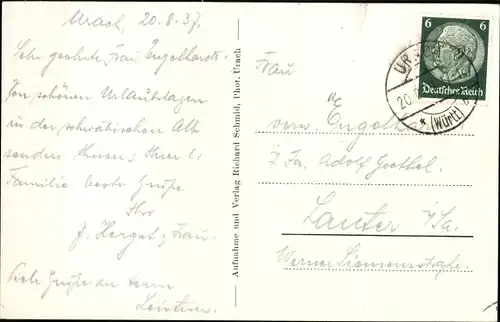 Urach, 20.8.37.
Sehr geehrte Frau Engelhardt!
Von schönen Urlaubstagen
in der schwäbischen Alb
senden Ihnen, Ihrer l.
Familie beste Grüße
Ihr
J. Herget, Frau.
Viele Grüße an Herrn
Aufnahme und Verlag Richard Schmid, Phot. Urach
6 6
Deutsches Reich
UR
20.
(Württ)
Frau
verw. Engelh
z. Fa. Adolf Goethel.
Lauter i/Sa.
Werner Siemensstraße.